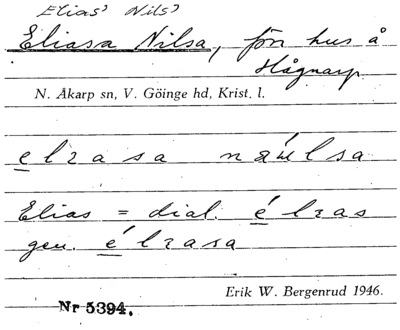 Elias' Nils'
Eliasa Nilsa, förr hus å
Hågnarp
N. Åkarp sn, V. Göinge hd, Krist. l.
elɪasa
Elias = dial. élɪas
gen. élɪasa
Erik W. Bergenrud 1946.
Nr 5394.